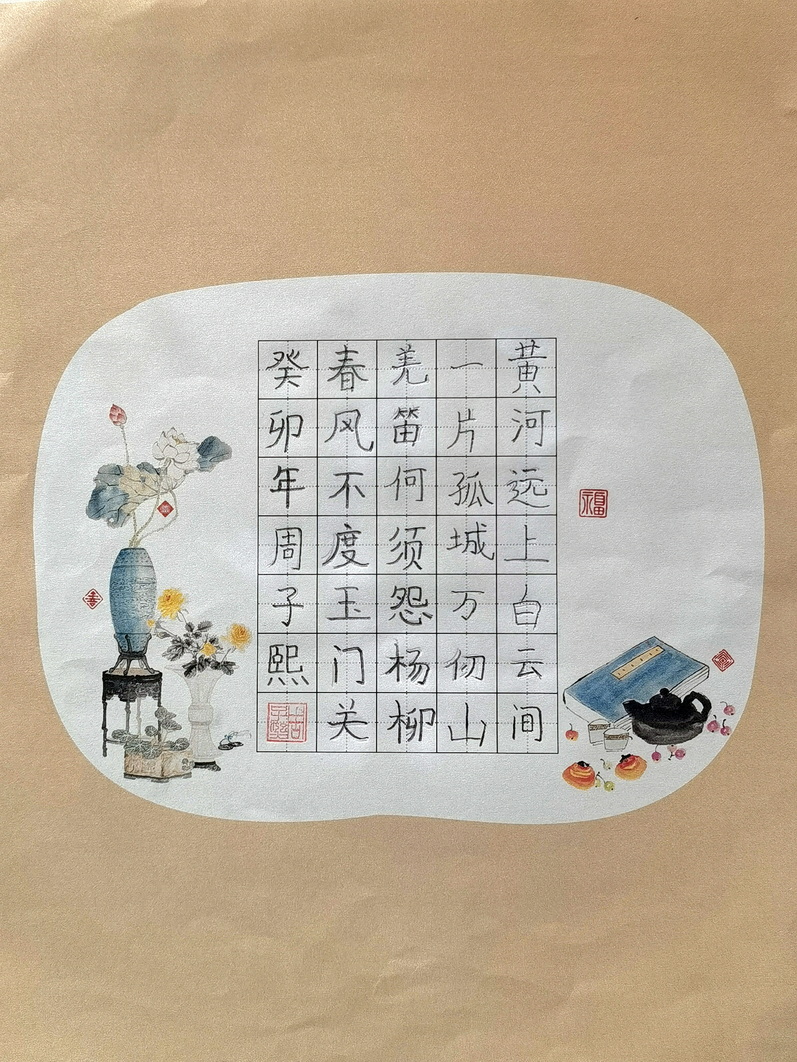 黄河远上白云间
一片孤城万仞山
羌笛何须怨杨柳
春风不度玉门关
癸卯年周子熙
福